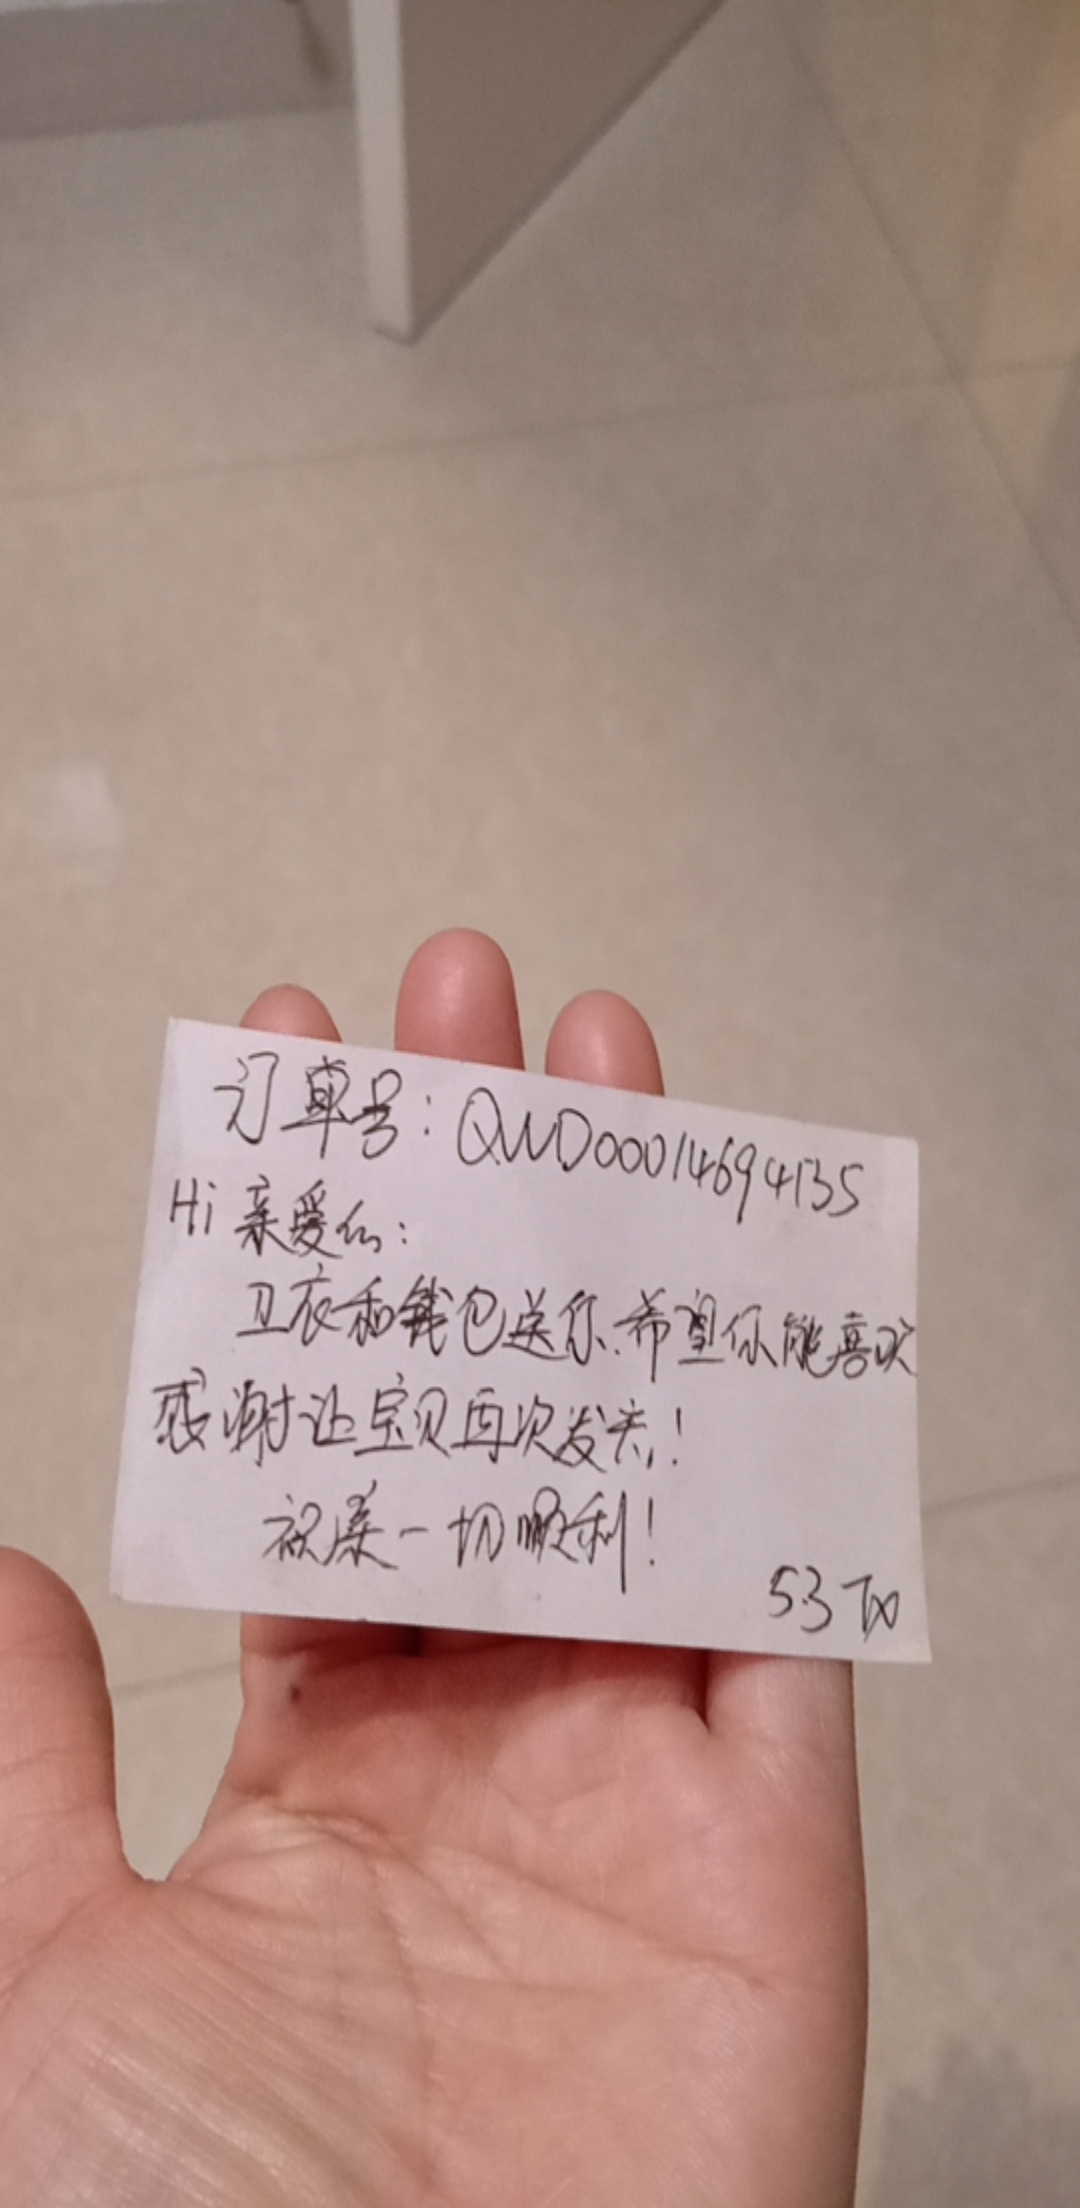 订单号：QWD00014694135
Hi 亲爱的：
卫衣和钱包送你.希望你能喜欢
感谢让宝贝再次发光！
祝亲一切顺利！
53